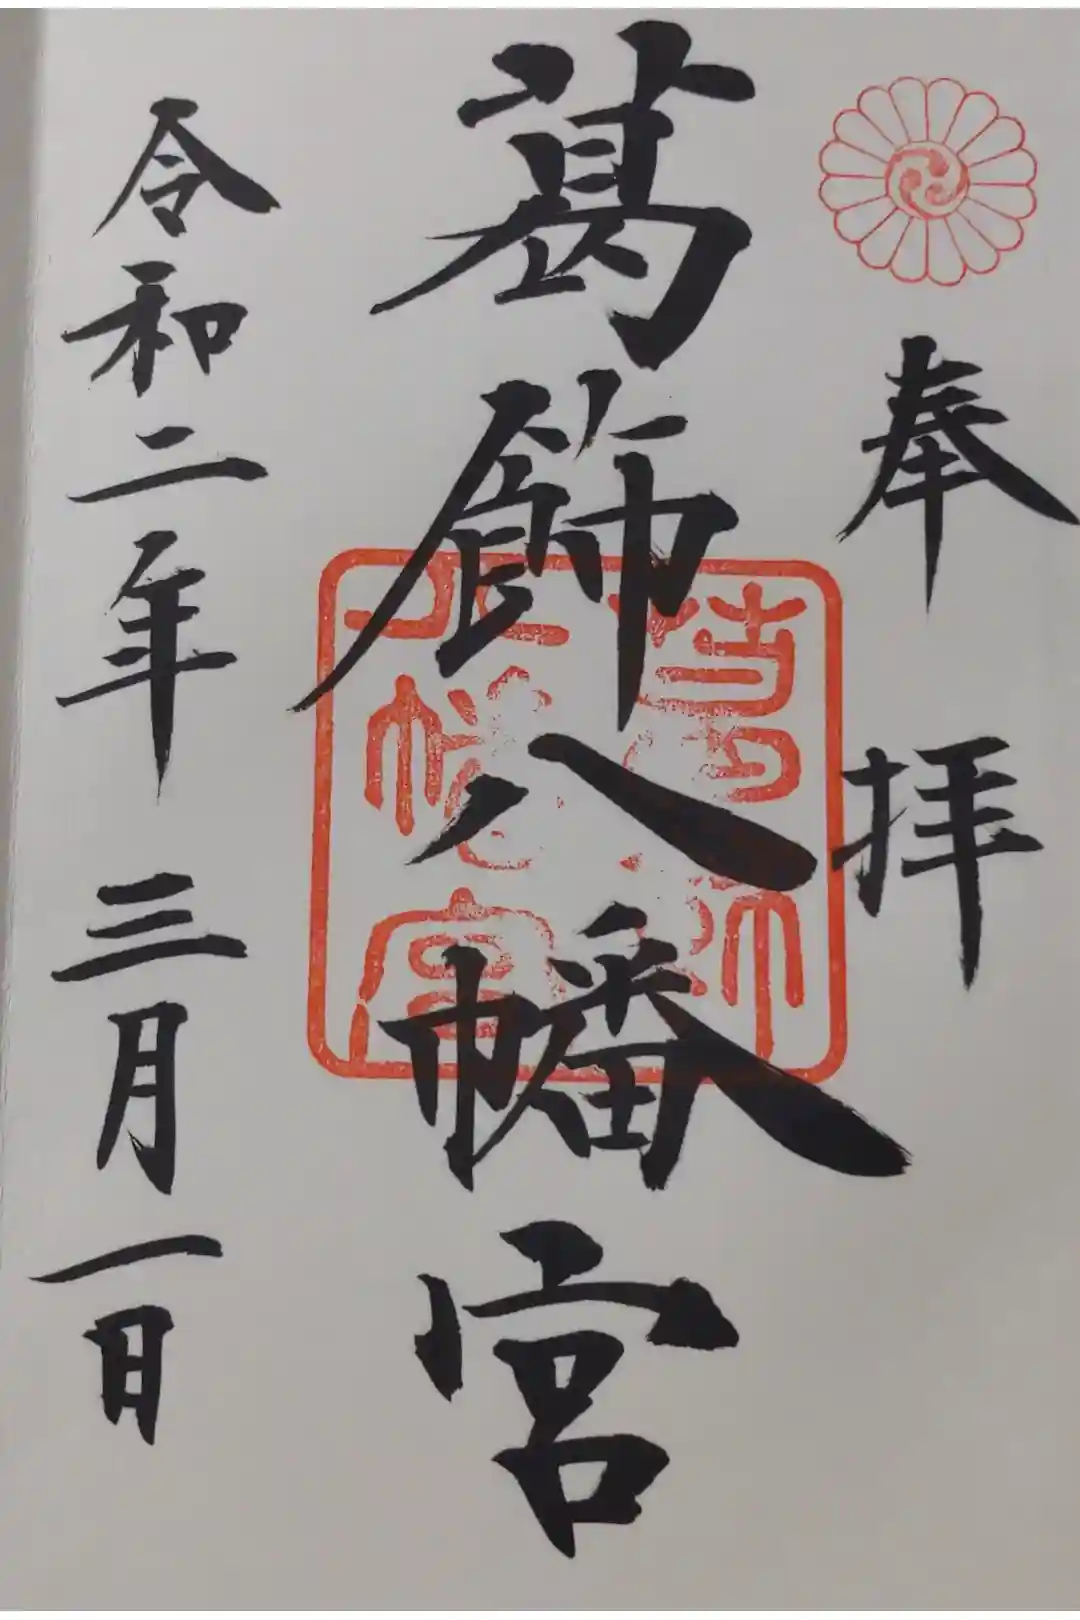 奉拝
葛飾八幡宮
令和二年三月一日
葛飾
八幡宮